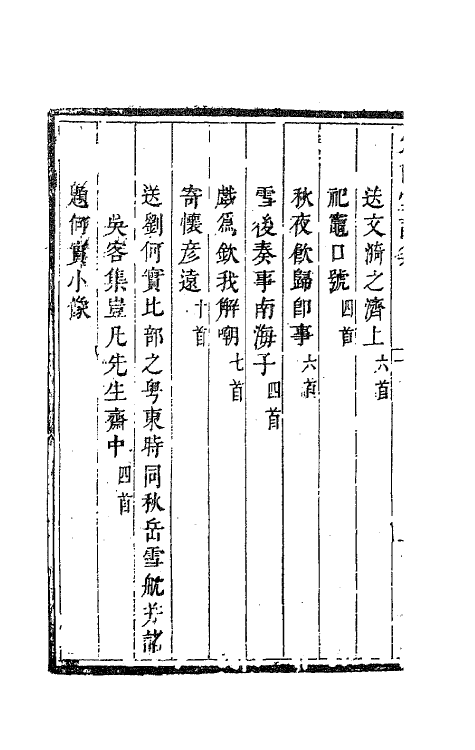 送文漪之濟上六首
祀竈口號四首
秋夜飲歸卽事六首
雪後奏事南海子四首
戲爲欽我解嘲七首
寄懷彥遠十首
送劉何實比部之粵東時同秋岳雪航芳諸
吳客集豈凡先生齋中四首
題何實小像